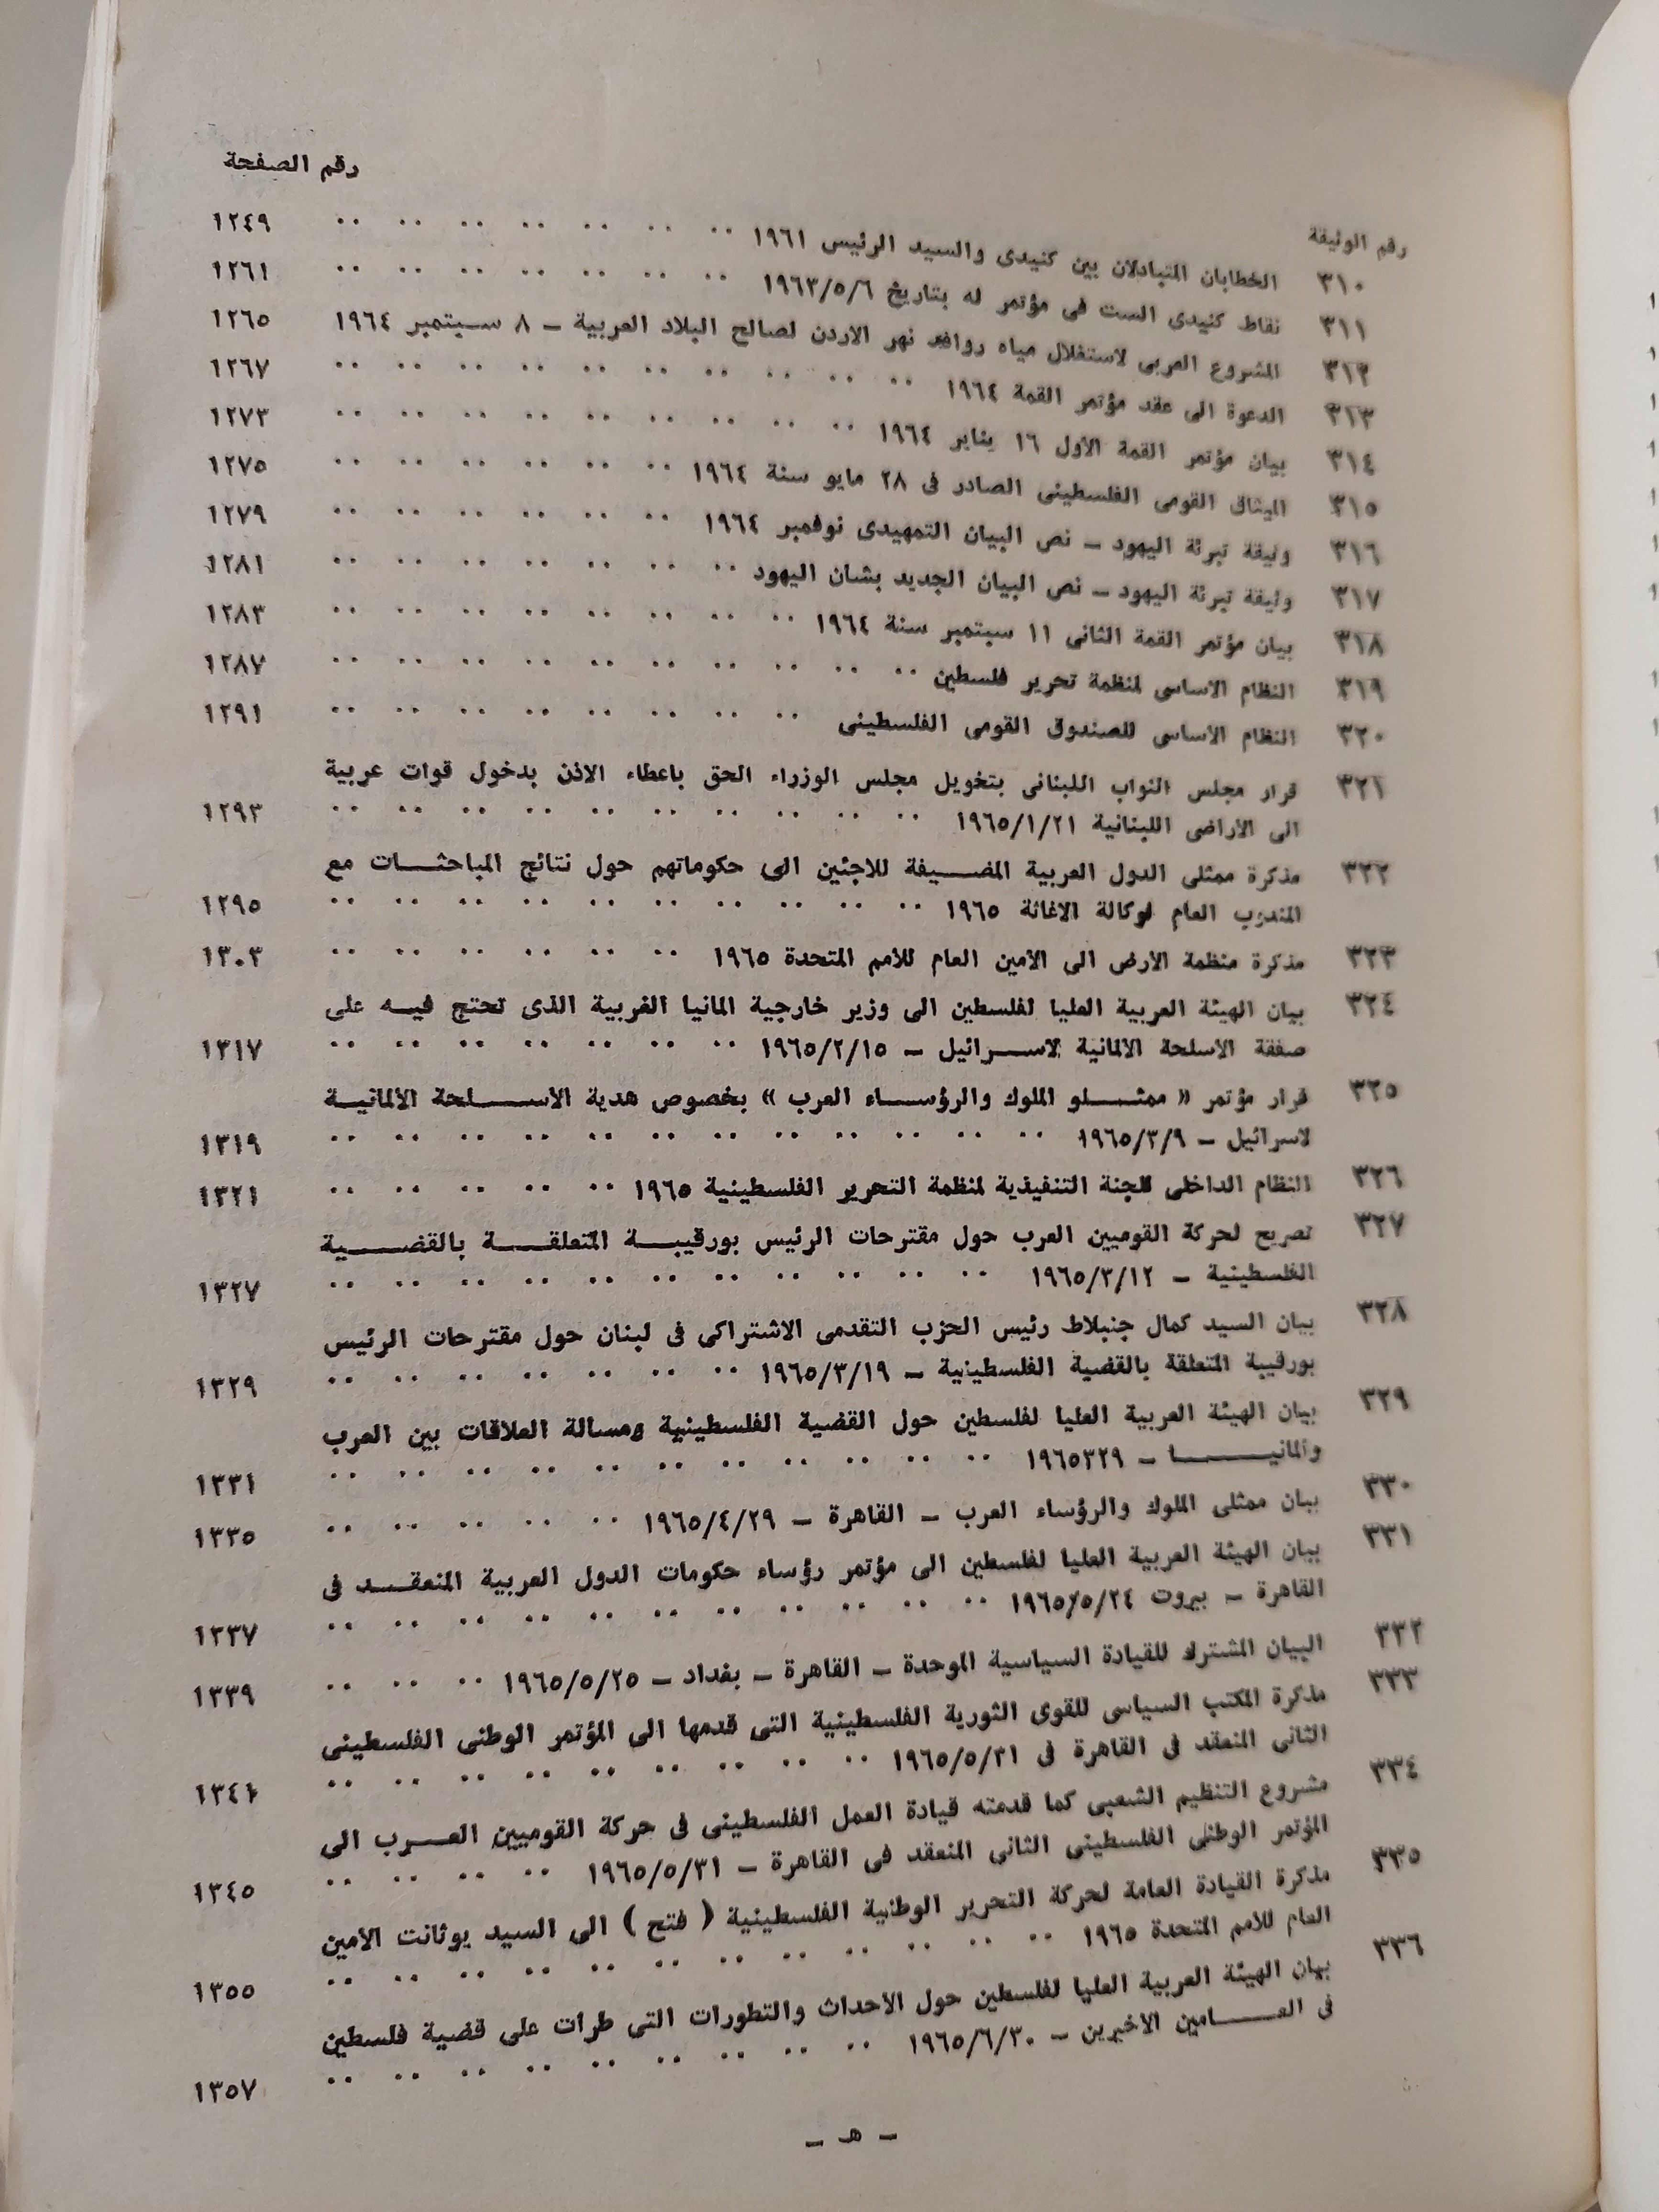 رقم الصفحة
رقم الوثيقة
٣١٠ الخطابان المتبادلان بين كنيدى والسيد الرئيس ١٩٦١ ١٢٤٩
٣١١ نقاط كنيدى الست فى مؤتمر له بتاريخ ١٩٦٣/٥/٦ ١٢٦١
٣١٢ المشروع العربى لاستغلال مياه روافد نهر الاردن لصالح البلاد العربية – ٨ سبتمبر ١٩٦٤ ١٢٦٥
٣١٣ الدعوة الى عقد مؤتمر القمة ١٩٦٤ ١٢٦٧
٣١٤ بيان مؤتمر القمة الأول ١٦ يناير ١٩٦٤ ١٢٧٣
٣١٥ الميثاق القومى الفلسطينى الصادر فى ٢٨ مايو سنة ١٩٦٤ ١٢٧٥
٣١٦ وثيقة تبرئة اليهود – نص البيان التمهيدى نوفمبر ١٩٦٤ ١٢٧٩
٣١٧ وثيقة تبرئة اليهود – نص البيان الجديد بشان اليهود ١٢٨١
٣١٨ بيان مؤتمر القمة الثانى ١١ سبتمبر سنة ١٩٦٤ ١٢٨٣
٣١٩ النظام الاساسى لمنظمة تحرير فلسطين ١٢٨٧
٣٢٠ النظام الاساسى للصندوق القومى الفلسطينى ١٢٩١
٣٢١ قرار مجلس النواب اللبنانى بتخويل مجلس الوزراء الحق باعطاء الاذن بدخول قوات عربية
الى الأراضى اللبنانية ١٩٦٥/١/٢١ ١٢٩٣
٣٢٢ مذكرة ممثلى الدول العربية المضيفة للاجئين الى حكوماتهم حول نتائج المباحثات مع
المندوب العام لوكالة الاغاثة ١٩٦٥ ١٢٩٥
٣٢٣ مذكرة منظمة الأرض الى الأمين العام للأمم المتحدة ١٩٦٥ ١٣٠٣
٣٢٤ بيان الهيئة العربية العليا لفلسطين الى وزير خارجية المانيا الغربية الذى تحتج فيه على
صفقة الأسلحة الالمانية لاسرائيل – ١٩٦٥/٢/١٥ ١٣١٧
٣٢٥ قرار مؤتمر « ممثلو الملوك والرؤساء العرب » بخصوص هدية الاسلحة الالمانية
لاسرائيل – ١٩٦٥/٣/٩ ١٣١٩
٣٢٦ النظام الداخلى للجنة التنفيذية لمنظمة التحرير الفلسطينية ١٩٦٥ ١٣٢١
٣٢٧ تصريح لحركة القوميين العرب حول مقترحات الرئيس بورقيبة المتعلقة بالقضية
الفلسطينية – ١٩٦٥/٣/١٢ ١٣٢٧
٣٢٨ بيان السيد كمال جنبلاط رئيس الحزب التقدمى الاشتراكى فى لبنان حول مقترحات الرئيس
بورقيبة المتعلقة بالقضية الفلسطينية – ١٩٦٥/٣/١٩ ١٣٢٩
٣٢٩ بيان الهيئة العربية العليا لفلسطين حول القضية الفلسطينية ومسالة العلاقات بين العرب
والمانيا – ١٩٦٥٣٢٩ ١٣٣١
٣٣٠ بيان ممثلى الملوك والرؤساء العرب – القاهرة – ١٩٦٥/٤/٢٩ ١٣٣٥
٣٣١ بيان الهيئة العربية العليا لفلسطين الى مؤتمر رؤساء حكومات الدول العربية المنعقد فى
القاهرة – بيروت ١٩٦٥/٥/٢٤ ١٣٣٧
٣٣٢ البيان المشترك للقيادة السياسية الموحدة – القاهرة – بغداد – ١٩٦٥/٥/٢٥ ١٣٣٩
٣٣٣ مذكرة المكتب السياسى للقوى الثورية الفلسطينية التى قدمها الى المؤتمر الوطنى الفلسطينى
الثانى المنعقد فى القاهرة فى ١٩٦٥/٥/٣١ ١٣٤١
٣٣٤ مشروع التنظيم الشعبى كما قدمته قيادة العمل الفلسطينى فى حركة القوميين العرب الى
المؤتمر الوطنى الفلسطينى الثانى المنعقد فى القاهرة – ١٩٦٥/٥/٣١ ١٣٤٥
٣٣٥ مذكرة القيادة العامة لحركة التحرير الوطنية الفلسطينية ( فتح ) الى السيد يوثانت الأمين
العام للأمم المتحدة ١٩٦٥ ١٣٥٥
٣٣٦ بيان الهيئة العربية العليا لفلسطين حول الأحداث والتطورات التى طرات على قضية فلسطين
فى العامين الأخيرين – ١٩٦٥/٦/٣٠ ١٣٥٧
– هـ –